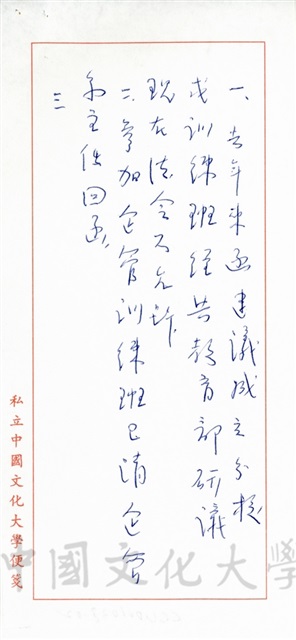 一、去年来函建議成立分校
或訓練班經與教育部研議
現在法令不允許
二、參加企管訓練班已請企管
系主任回函
三
私立中國文化大學便箋
中國文化大學